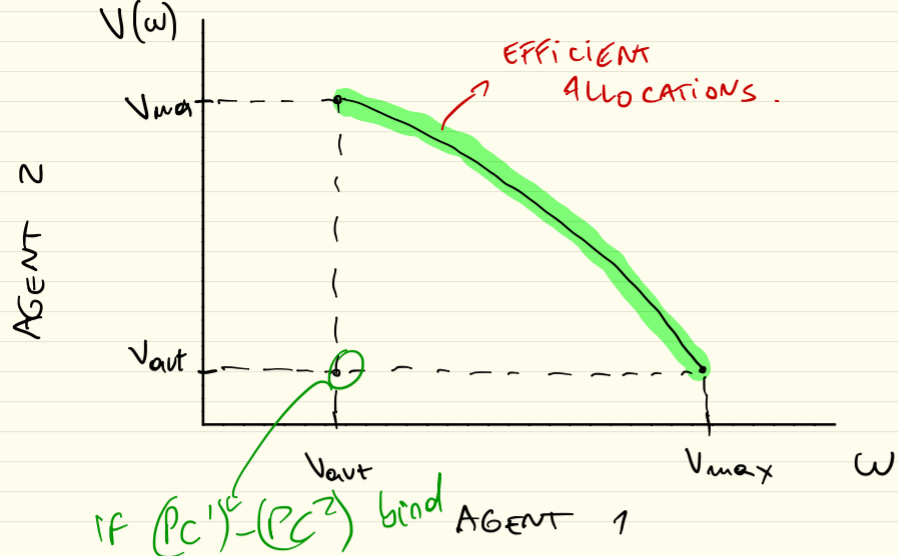 V(ω)
EFFICIENT
ALLOCATIONS.
Vmax
AGENT 2
Vaut
Vaut
Vmax
ω
if (PC¹)-(PC²) bind
AGENT 1